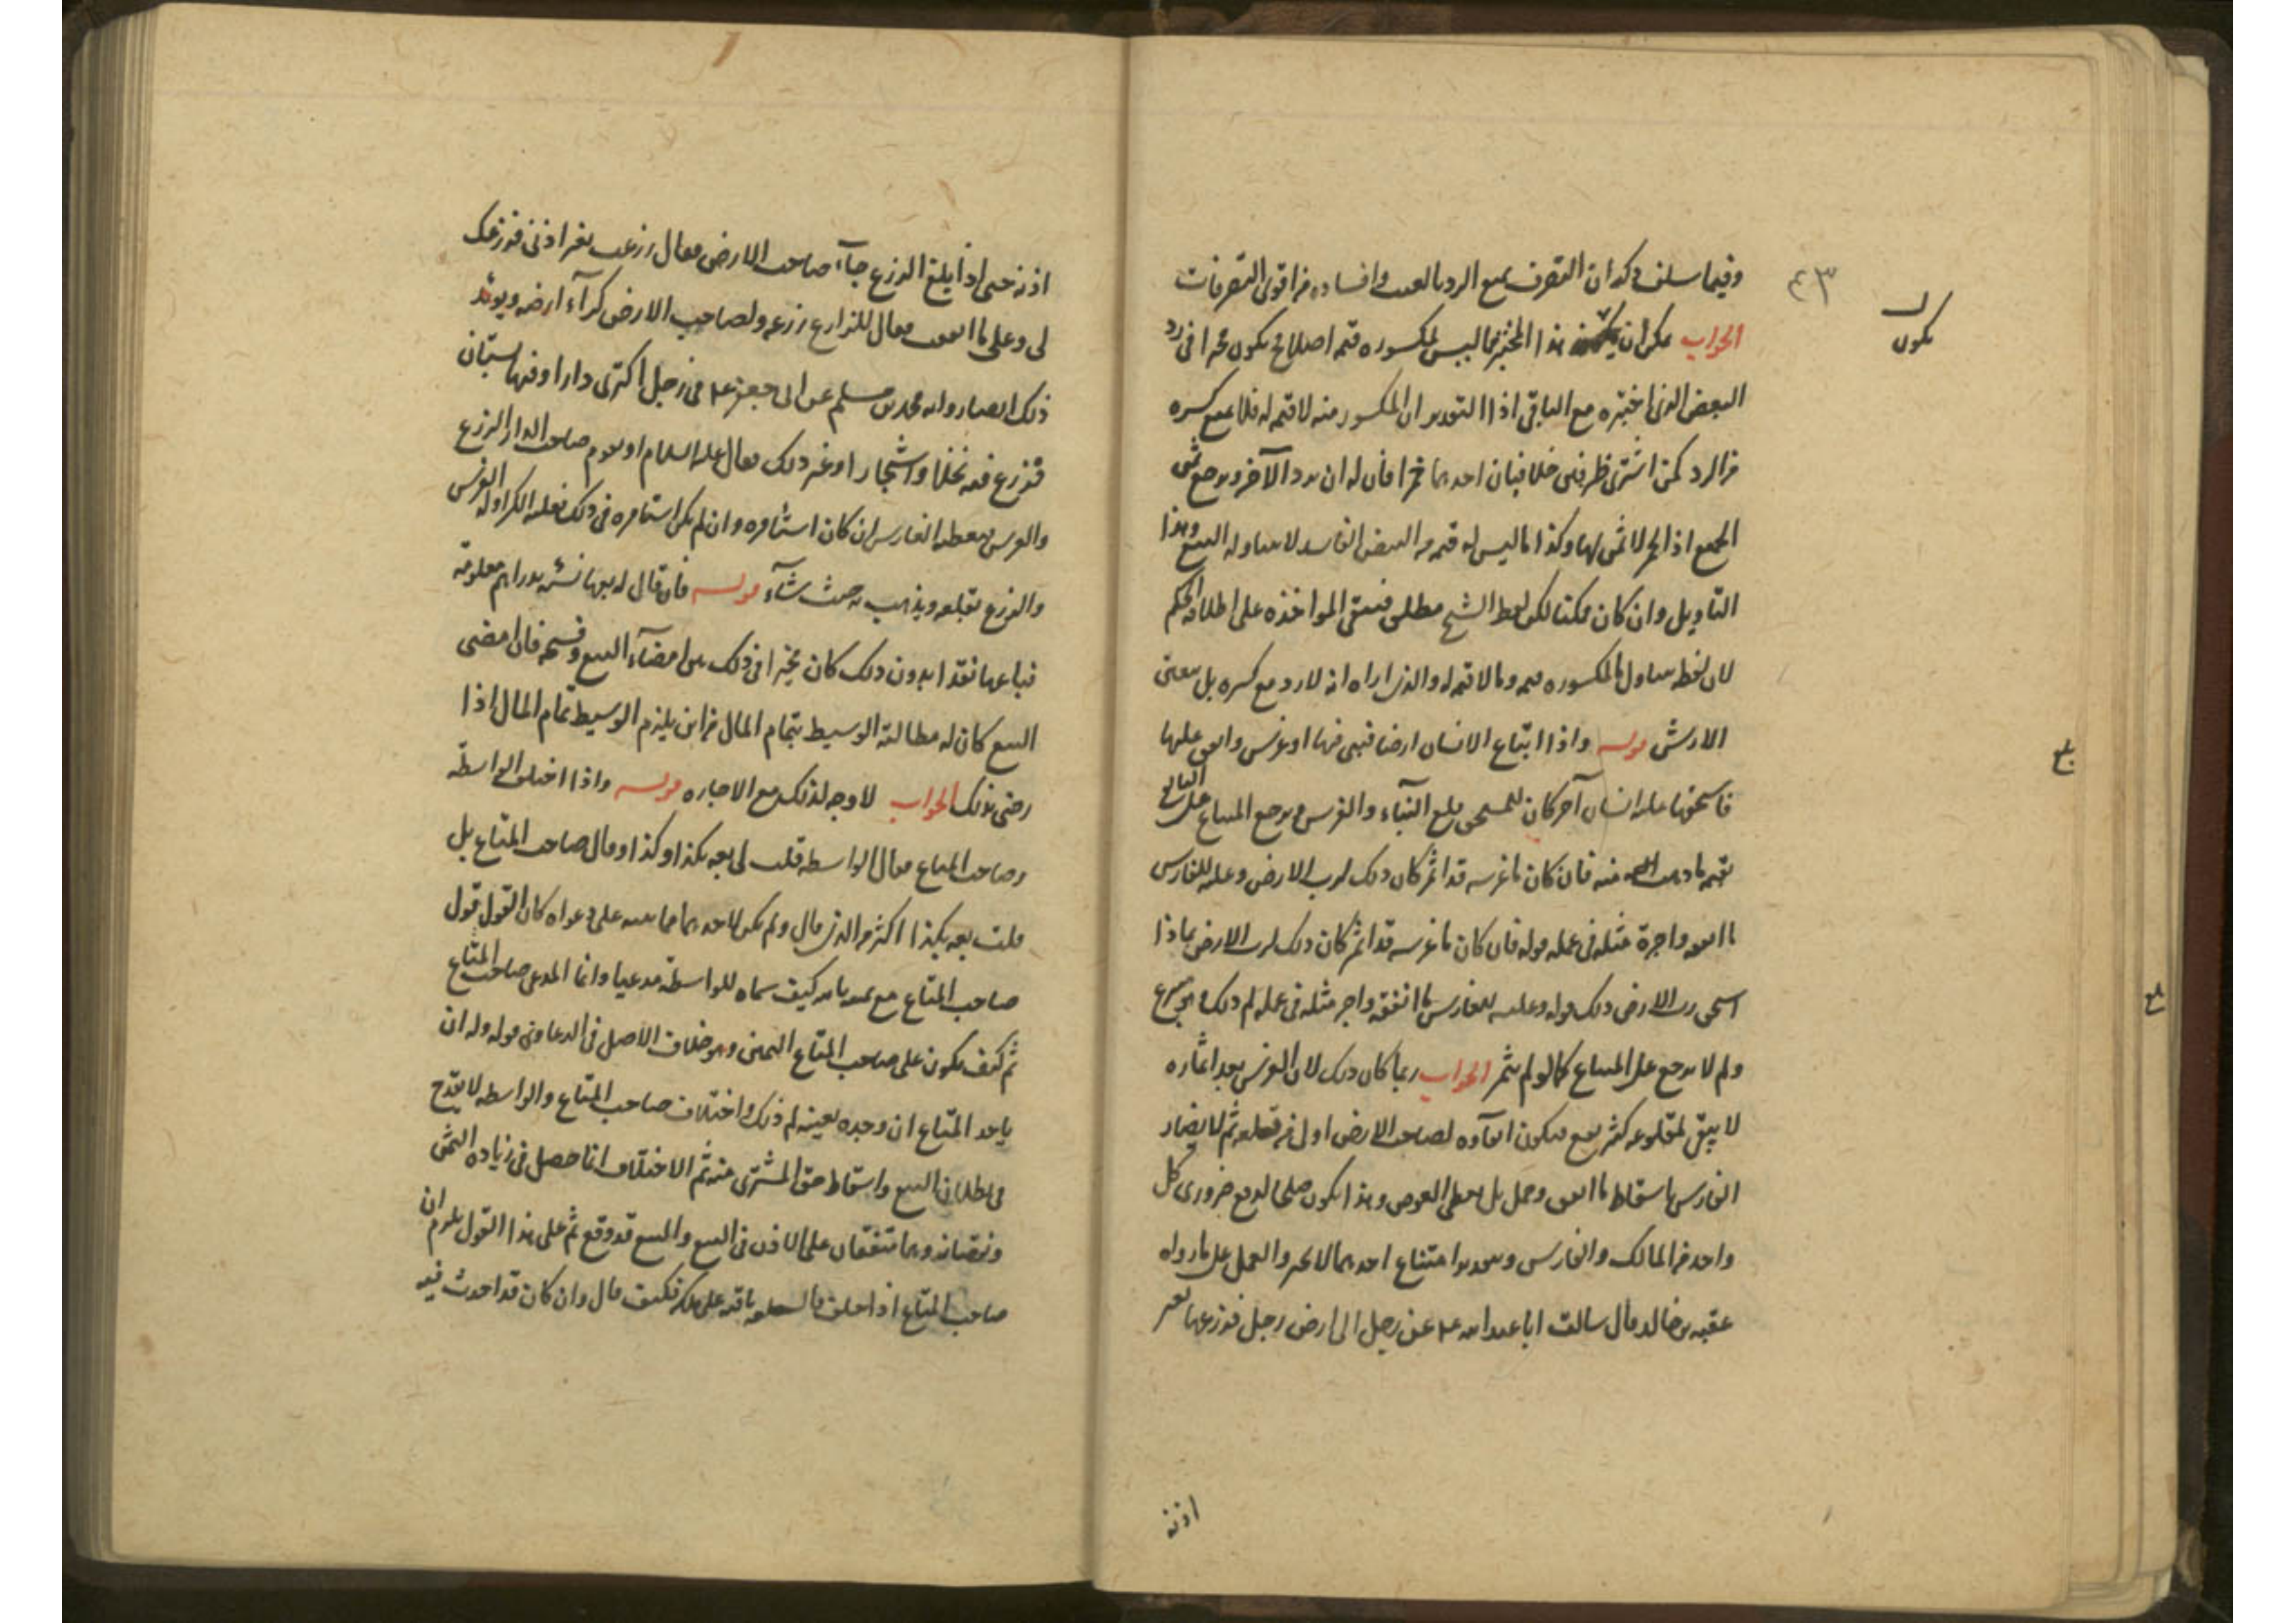 ٤٣
يكون
وفيما سلف ذكر ان التصرف يمنع الرد بالعيب وافساده من اقوى التصرفات
الجواب يمكن ان هذا المختبر مما ليس لمكسوره قيمه اصلا فلا يكون مخيرا في رد
البعض الذى اختبره مع الباقي اذا التقدير ان المكسور منه لا قيمه له فلا يمنع كسره
من الرد كمن اشترى ظرفى خل فبان احدهما خمرا فان له ان يرد الآخر ويرجع بثمن
الجميع اذ الخمر لا ثمن لها وكذا ما ليس له قيمه من البيض الفاسد لا يتناوله البيع وهذا
التاويل وان كان ممكنا لكن لفظ الشيخ مطلق فتبقى المواخذه على اطلاقه الحكم
لان لفظه يتناول ما لمكسوره قيمه وما لا قيمه له والذى اراه انه لا رد مع كسره بل يتعين
الارش قوله واذا ابتاع الانسان ارضا فبنى فيها او غرس وانفق عليها
فاستحقها عليه انسان آخر كان للمستحق قلع البناء والغرس ويرجع المبتاع على البائع
بقيمه ما ذهب منه فان كان ما غرسه قد اثمر كان ذلك لرب الارض وعليه للغارس
ما انفقه واجرة مثله في عمله قوله فان كان ما غرسه قد اثمر كان ذلك لرب الارض بماذا
استحق رب الارض ذلك قوله وعليه للغارس ما انفقه واجر مثله في عمله لم ذلك
ولم لا يرجع على المبتاع كما لو لم يثمر الجواب ربما كان ذلك لان الغرس بعد اثماره
لا يبقى لمقلوعه كثير نفع فيكون ابقاوه لصاحب الارض اولى من قطعه ثم لا يضار
الغارس باسقاط ما انفق وعمل بل يعطى العوض وهذا يكون صلحا لدفع ضرورى كل
واحد من المالك والغارس وبتقدير امتناع احدهما لا يجبر والعمل على ما رواه
عقبه بن خالد قال سالت ابا عبد الله ع عن رجل اتى ارض رجل فزرعها بغير
اذنه
اذنه حتى اذا بلغ الزرع جآء صاحب الارض فقال زرعت بغير اذنى فزرعك
لى وعلى ما انفقت فقال للزارع زرعه ولصاحب الارض كرآء ارضه ويويد
ذلك ايضا روايه محمد بن مسلم عن ابى جعفر ع في رجل اكترى دارا وفيها بستان
فزرع فيه نخلا واشجارا وغير ذلك فقال عليه السلام او يقوم صاحب الدار الزرع
والغرس فيعطيه الغارس ان كان استامره وان لم يكن استامره في ذلك فعليه الكرا وله الغرس
والزرع يقلعه ويذهب به حيث شآء قوله فان قال له بعها نسيه بدراهم معلومة
فباعها نقدا بدون ذلك كان مخيرا في ذلك بين امضآء البيع وفسخه فان امضى
البيع كان له مطالبة الوسيط بتمام المال من اين يلزم الوسيط تمام المال اذا
رضى بذلك الجواب لا وجه لذلك مع الاجازه قوله واذا اختلف الواسطة
وصاحب المتاع فقال الواسطه قلت لى بعه بكذا وكذا وقال صاحب المتاع بل
قلت بعه بكذا اكثر من الذى قال ولم يكن لاحدهما بينه على دعواه كان القول قول
صاحب المتاع مع يمينه بالله كيف سماه للواسطة مدعيا وانما المدعى صاحب المتاع
ثم كيف يكون على صاحب المتاع اليمين وهو خلاف الاصل في الدعاوى قوله وله ان
ياخذ المتاع ان وجده بعينه لم ذلك واختلاف صاحب المتاع والواسطه لا يقدح
في بطلان البيع واسقاط حق المشترى منه ثم الاختلاف انما حصل في زياده الثمن
ونقصانه وهما متفقان على الاذن في البيع والبيع قد وقع ثم على هذا القول يلزم ان
صاحب المتاع اذا حلف باقيه على ملكه فكيف قال وان كان قد احدث فيه